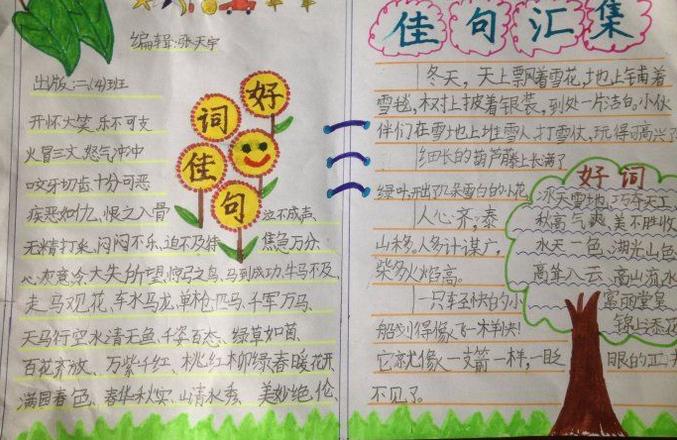 编辑:张天宇
出版:二、(4)班
好
词
佳
句
开怀大笑、乐不可支
火冒三丈、怒气冲冲
咬牙切齿、十分可恶
疾恶如仇、恨之入骨 泣不成声、
无精打采、闷闷不乐、迫不及待 焦急万分、
心灰意冷、大失所望、惊弓之鸟、马到成功、牛马不及、
走马观花、车水马龙、单枪匹马、千军万马、
天马行空、水清无鱼、千姿百态、绿草如茵、
百花齐放、万紫千红、桃红柳绿、春暖花开、
满园春色、春华秋实、山清水秀、美妙绝伦、
佳句汇集
冬天,天上飘着雪花,地上铺着
雪毯,树上披着银装,到处一片洁白,小伙
伴们在雪地上堆雪人,打雪仗,玩得可高兴了
细长的葫芦藤上长满了
绿叶,开出了几朵雪白的小花
人心齐,泰
山移。人多计谋广,
柴多火焰高。
一只轻快的小
船划得像飞一样快!
它就像一支箭一样,一眨 眼的工夫
不见了。
好词
冰天雪地、巧夺天工
秋高气爽 美不胜收
水天一色、湖光山色
高耸入云 高山流水
富丽堂皇
锦上添花